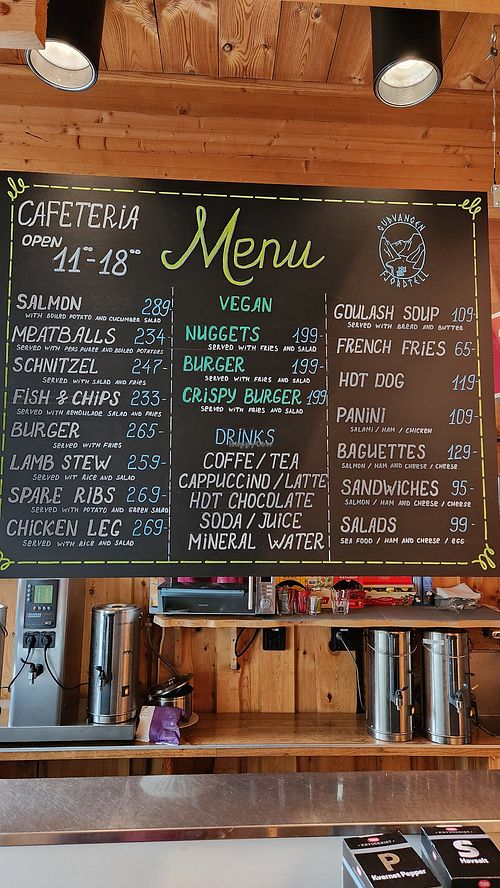 CAFETERIA
OPEN
11-00 - 18-00
Menu
GUDVANGEN
FJORDTELL
SALMON 289
WITH BOILED POTATO AND CUCUMBER SALAD
MEATBALLS 234-
SERVED WITH PEAS PUREE AND BOILED POTATOES
SCHNITZEL 247-
SERVED WITH SALAD AND FRIES
FISH & CHIPS 233-
SERVED WITH REMOULADE SALAD AND FRIES
BURGER 265-
SERVED WITH FRIES
LAMB STEW 259-
SERVED WIT RICE AND SALAD
SPARE RIBS 269-
SERVED WITH POTATO AND GREEN SALAD
CHICKEN LEG 269-
SERVED WITH RICE AND SALAD
VEGAN
NUGGETS 199-
SERVED WITH FRIES AND SALAD
BURGER 199-
SERVED WITH FRIES AND SALAD
CRISPY BURGER 199
SERVED WITH FRIES AND SALAD
DRINKS
COFFE/TEA
CAPPUCCINO/LATTE
HOT CHOCOLATE
SODA/JUICE
MINERAL WATER
GOULASH SOUP 109-
SERVED WITH BREAD AND BUTTER
FRENCH FRIES 65-
HOT DOG 119-
PANINI 109-
SALAMI / HAM / CHICKEN
BAGUETTES 129-
SALMON / HAM AND CHEESE / CHEESE
SANDWICHES 95-
SALMON / HAM AND CHEESE / CHEESE
SALADS 99-
SEA FOOD / HAM AND CHEESE / EGG
P
Kvernet Pepper
S
Havsalt